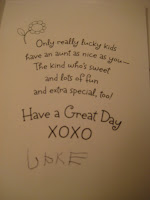 Only really lucky kids
have an aunt as nice as you—
The kind who's sweet
and lots of fun
and extra special, too!
Have a Great Day
XOXO
LUKE